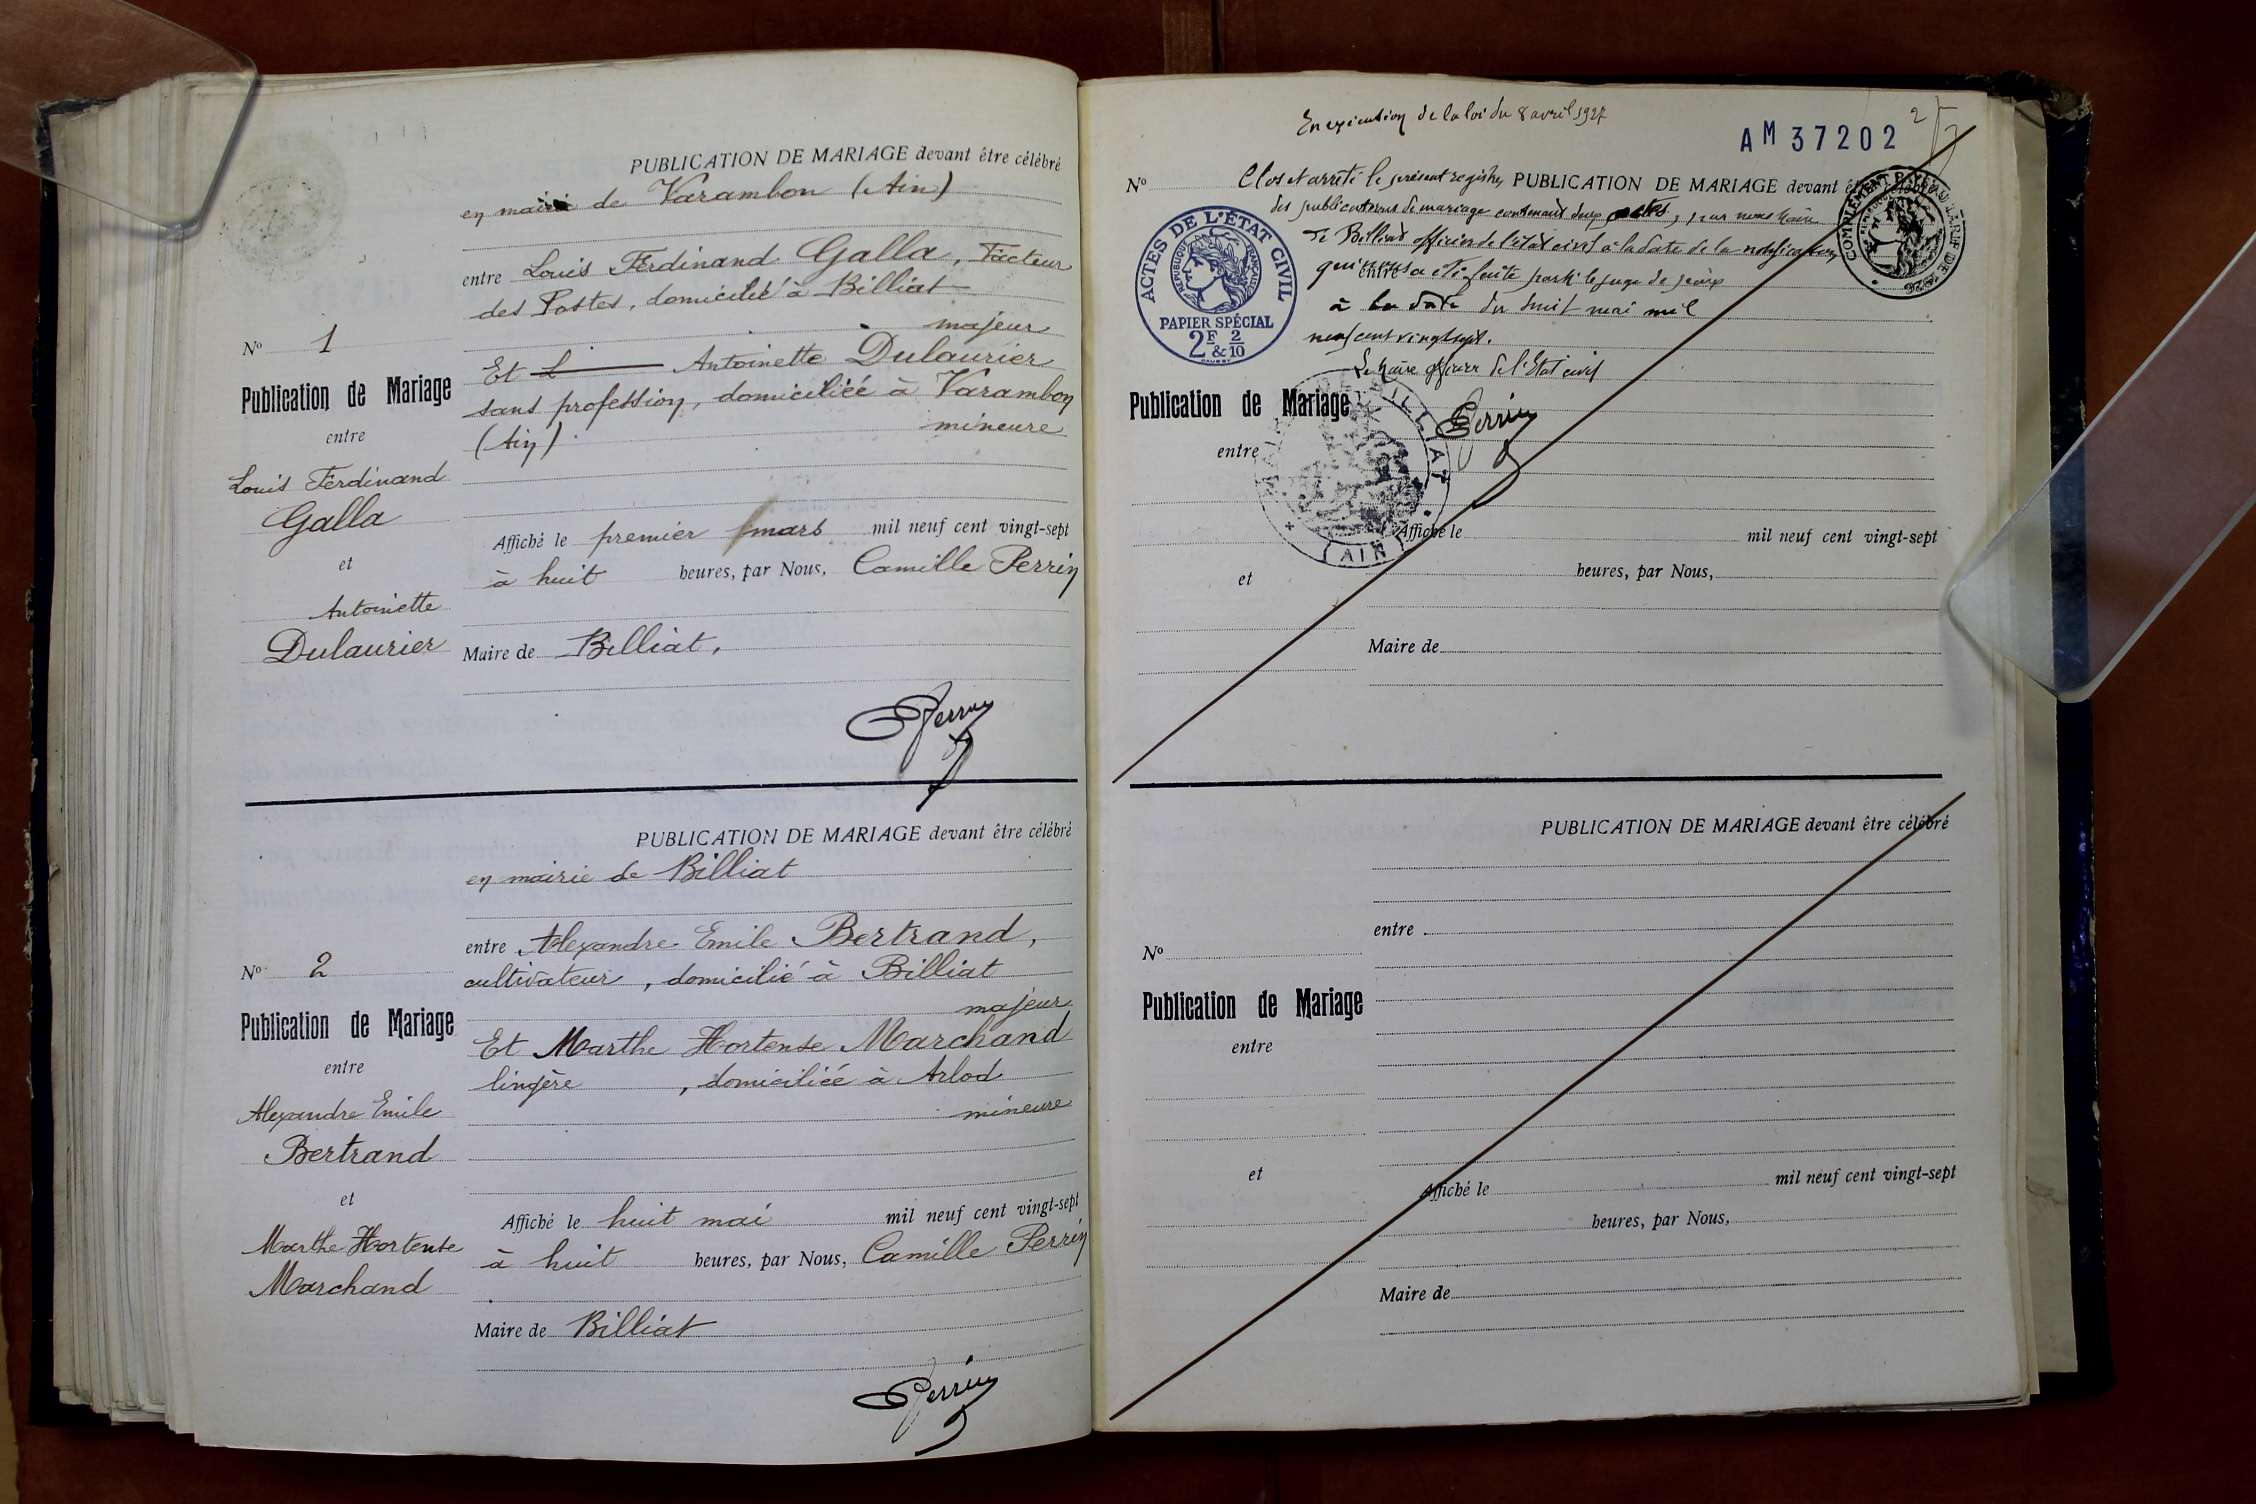 PUBLICATION DE MARIAGE devant être célébré
en mairie de Varambon (Ain)
entre Louis Ferdinand Galla, Facteur
des Postes, domicilié à Billiat
majeur
Et Antoinette Dulaurier
sans profession, domiciliée à Varambon
(Ain).
mineure
Affiché le premier mars mil neuf cent vingt-sept
à huit heures, par Nous, Camille Perrin
Maire de Billiat.
Perrin
No 1
Publication de Mariage
entre
Louis Ferdinand
Galla
et
Antoinette
Dulaurier
PUBLICATION DE MARIAGE devant être célébré
en mairie de Billiat
entre Alexandre Emile Bertrand,
cultivateur, domicilié à Billiat
majeur
Et Marthe Hortense Marchand
lingère, domiciliée à Arlod
mineure
Affiché le huit mai mil neuf cent vingt-sept
à huit heures, par Nous, Camille Perrin
Maire de Billiat
Perrin
No 2
Publication de Mariage
entre
Alexandre Emile
Bertrand
et
Marthe Hortense
Marchand
En exécution de la loi du 8 avril 1927
AM 37202
2
No
Clos et arrêté le présent registre PUBLICATION DE MARIAGE devant être célébré
des publications de mariage contenant deux actes, par nous Maire
de Billiat officier de l'état civil à la date de la notification
qui nous a été faite par le juge de paix
entre
à la date du huit mai mil
neuf cent vingt sept.
Le Maire officier de l'Etat civil
Perrin
ACTES DE L'ÉTAT CIVIL
RÉPUBLIQUE FRANÇAISE
PAPIER SPÉCIAL
2F & 2/10
COMPLÉMENT
BILLIAT
(AIN)
Publication de Mariage
entre
et
Affiché le mil neuf cent vingt-sept
heures, par Nous,
Maire de
PUBLICATION DE MARIAGE devant être célébré
entre
No
Publication de Mariage
entre
et
Affiché le mil neuf cent vingt-sept
heures, par Nous,
Maire de